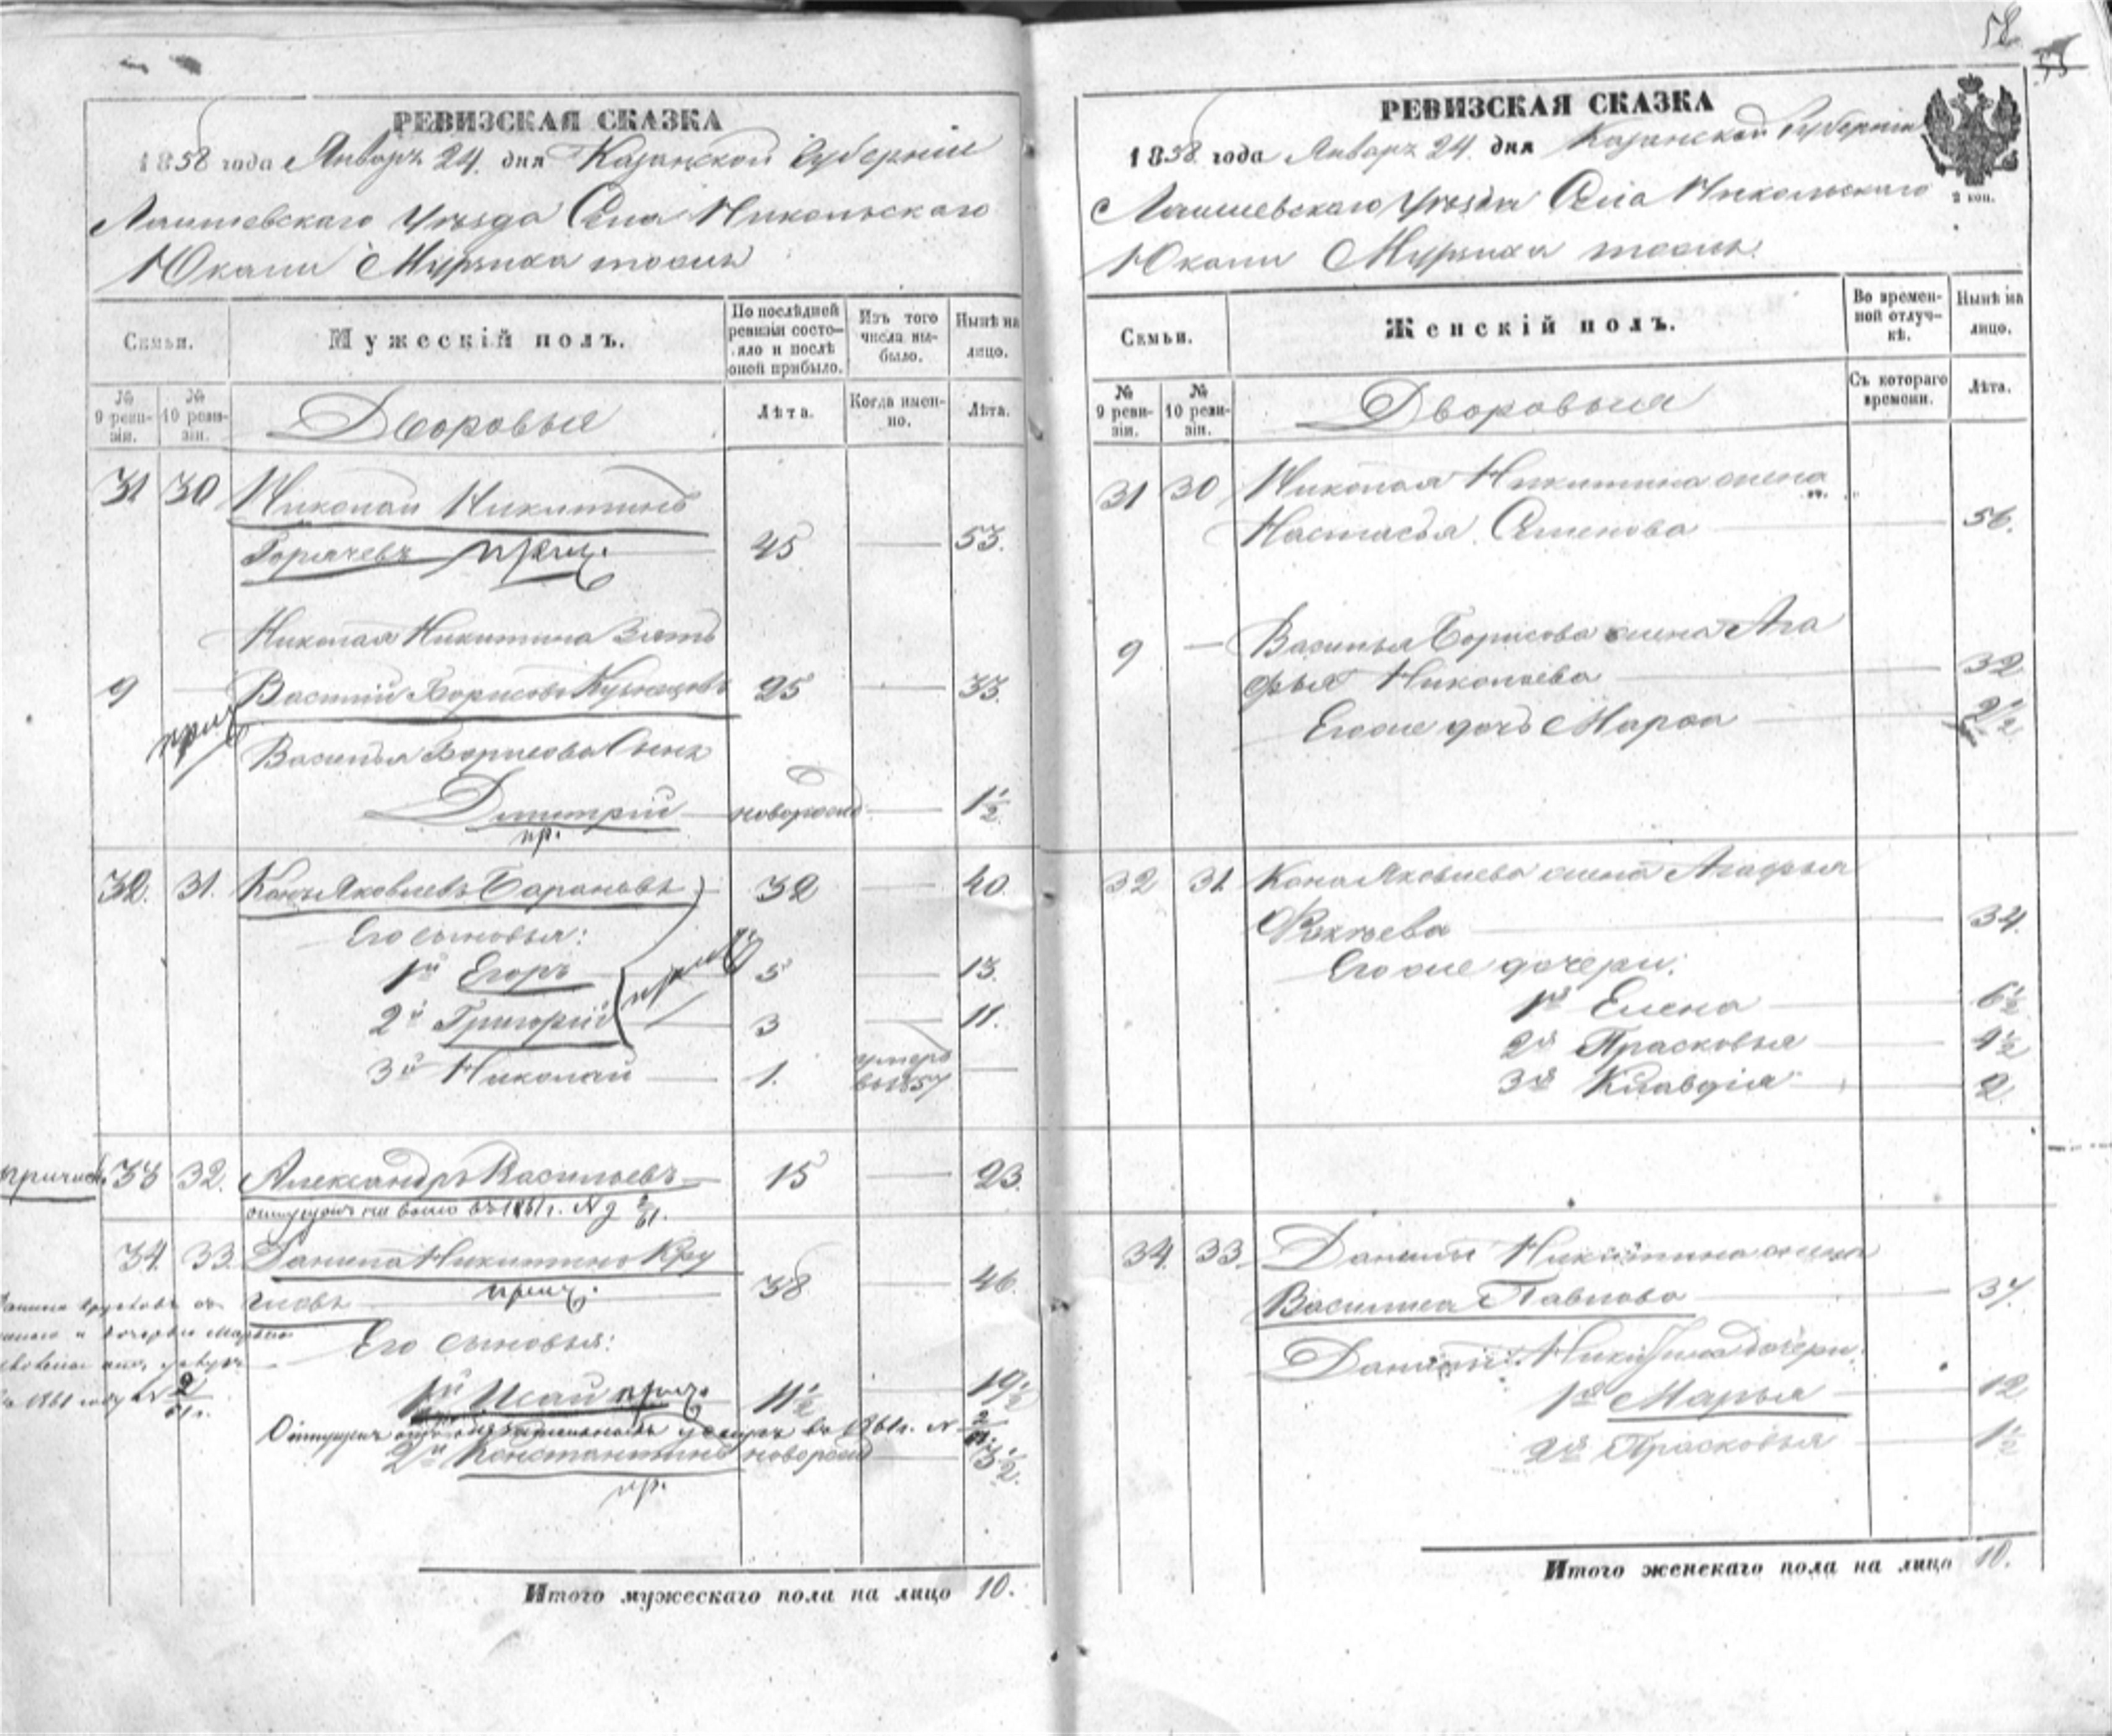 РЕВИЗСКАЯ СКАЗКА
1858 года Январь 24. дня Казанской Губерніи
Лаишевскаго Уѣзда Села Никольскаго
Юкани Мурзиха тожъ
Семьи.
Мужескій полъ.
По послѣдней ревизіи состояло и послѣ оной прибыло.
Изъ того числа выбыло.
Нынѣ на лицо.
№ 9 ревизіи.
№ 10 ревизіи.
Дворовые
Лѣта.
Когда именно.
Лѣта.
31 30 Николай Никитинъ
Горячевъ прич. 45 — 53.
Николая Никитина Зять
9 — Василій Борисовъ Кузнецовъ 25 — 33.
прич
Василья Борисова Сынъ
Дмитрій — новорожд — 1½
пр.
32. 31. Кононъ Яковлевъ Барановъ 32 — 40.
Его сыновья:
1й Егоръ 5 — 13.
2й Григорій 3 — 11.
3й Николай — 1. умеръ въ 1857 —
33 32. Александръ Васильевъ — 15 — 23.
отпущенъ на волю въ 1861 г. № 2/61.
34. 33. Данила Никитинъ Кру
гловъ прич. 38 — 46.
Его сыновья:
1й Исай прич. 11½ — 19½
2й Константинъ новорожд — 3½.
пр.
Итого мужескаго пола на лицо 10.
52
53
РЕВИЗСКАЯ СКАЗКА
1858 года Январь 24. дня Казанской Губерніи
Лаишевскаго Уѣзда Села Никольскаго
2 коп.
Юкани Мурзиха тожъ.
Семьи.
Женскій полъ.
Во временной отлучкѣ.
Нынѣ на лицо.
№ 9 ревизіи.
№ 10 ревизіи.
Дворовыя
Съ котораго времени.
Лѣта.
31 30 Николая Никитина жена
Настасья Семенова 56.
9 — Василья Борисова жена Ага
фья Николаева 32
Его же дочь Марѳа 2½
32 31 Конона Яковлева жена Агафья
Фокѣева 34.
Его же дочери:
1я Елена 6½
2я Прасковья 4½
3я Клавдія 2.
34. 33. Данилы Никитина жена
Василиса Павлова 37.
Данилы Никитина дочери:
1я Марья 12
2я Прасковья 1½
Итого женскаго пола на лицо 10.